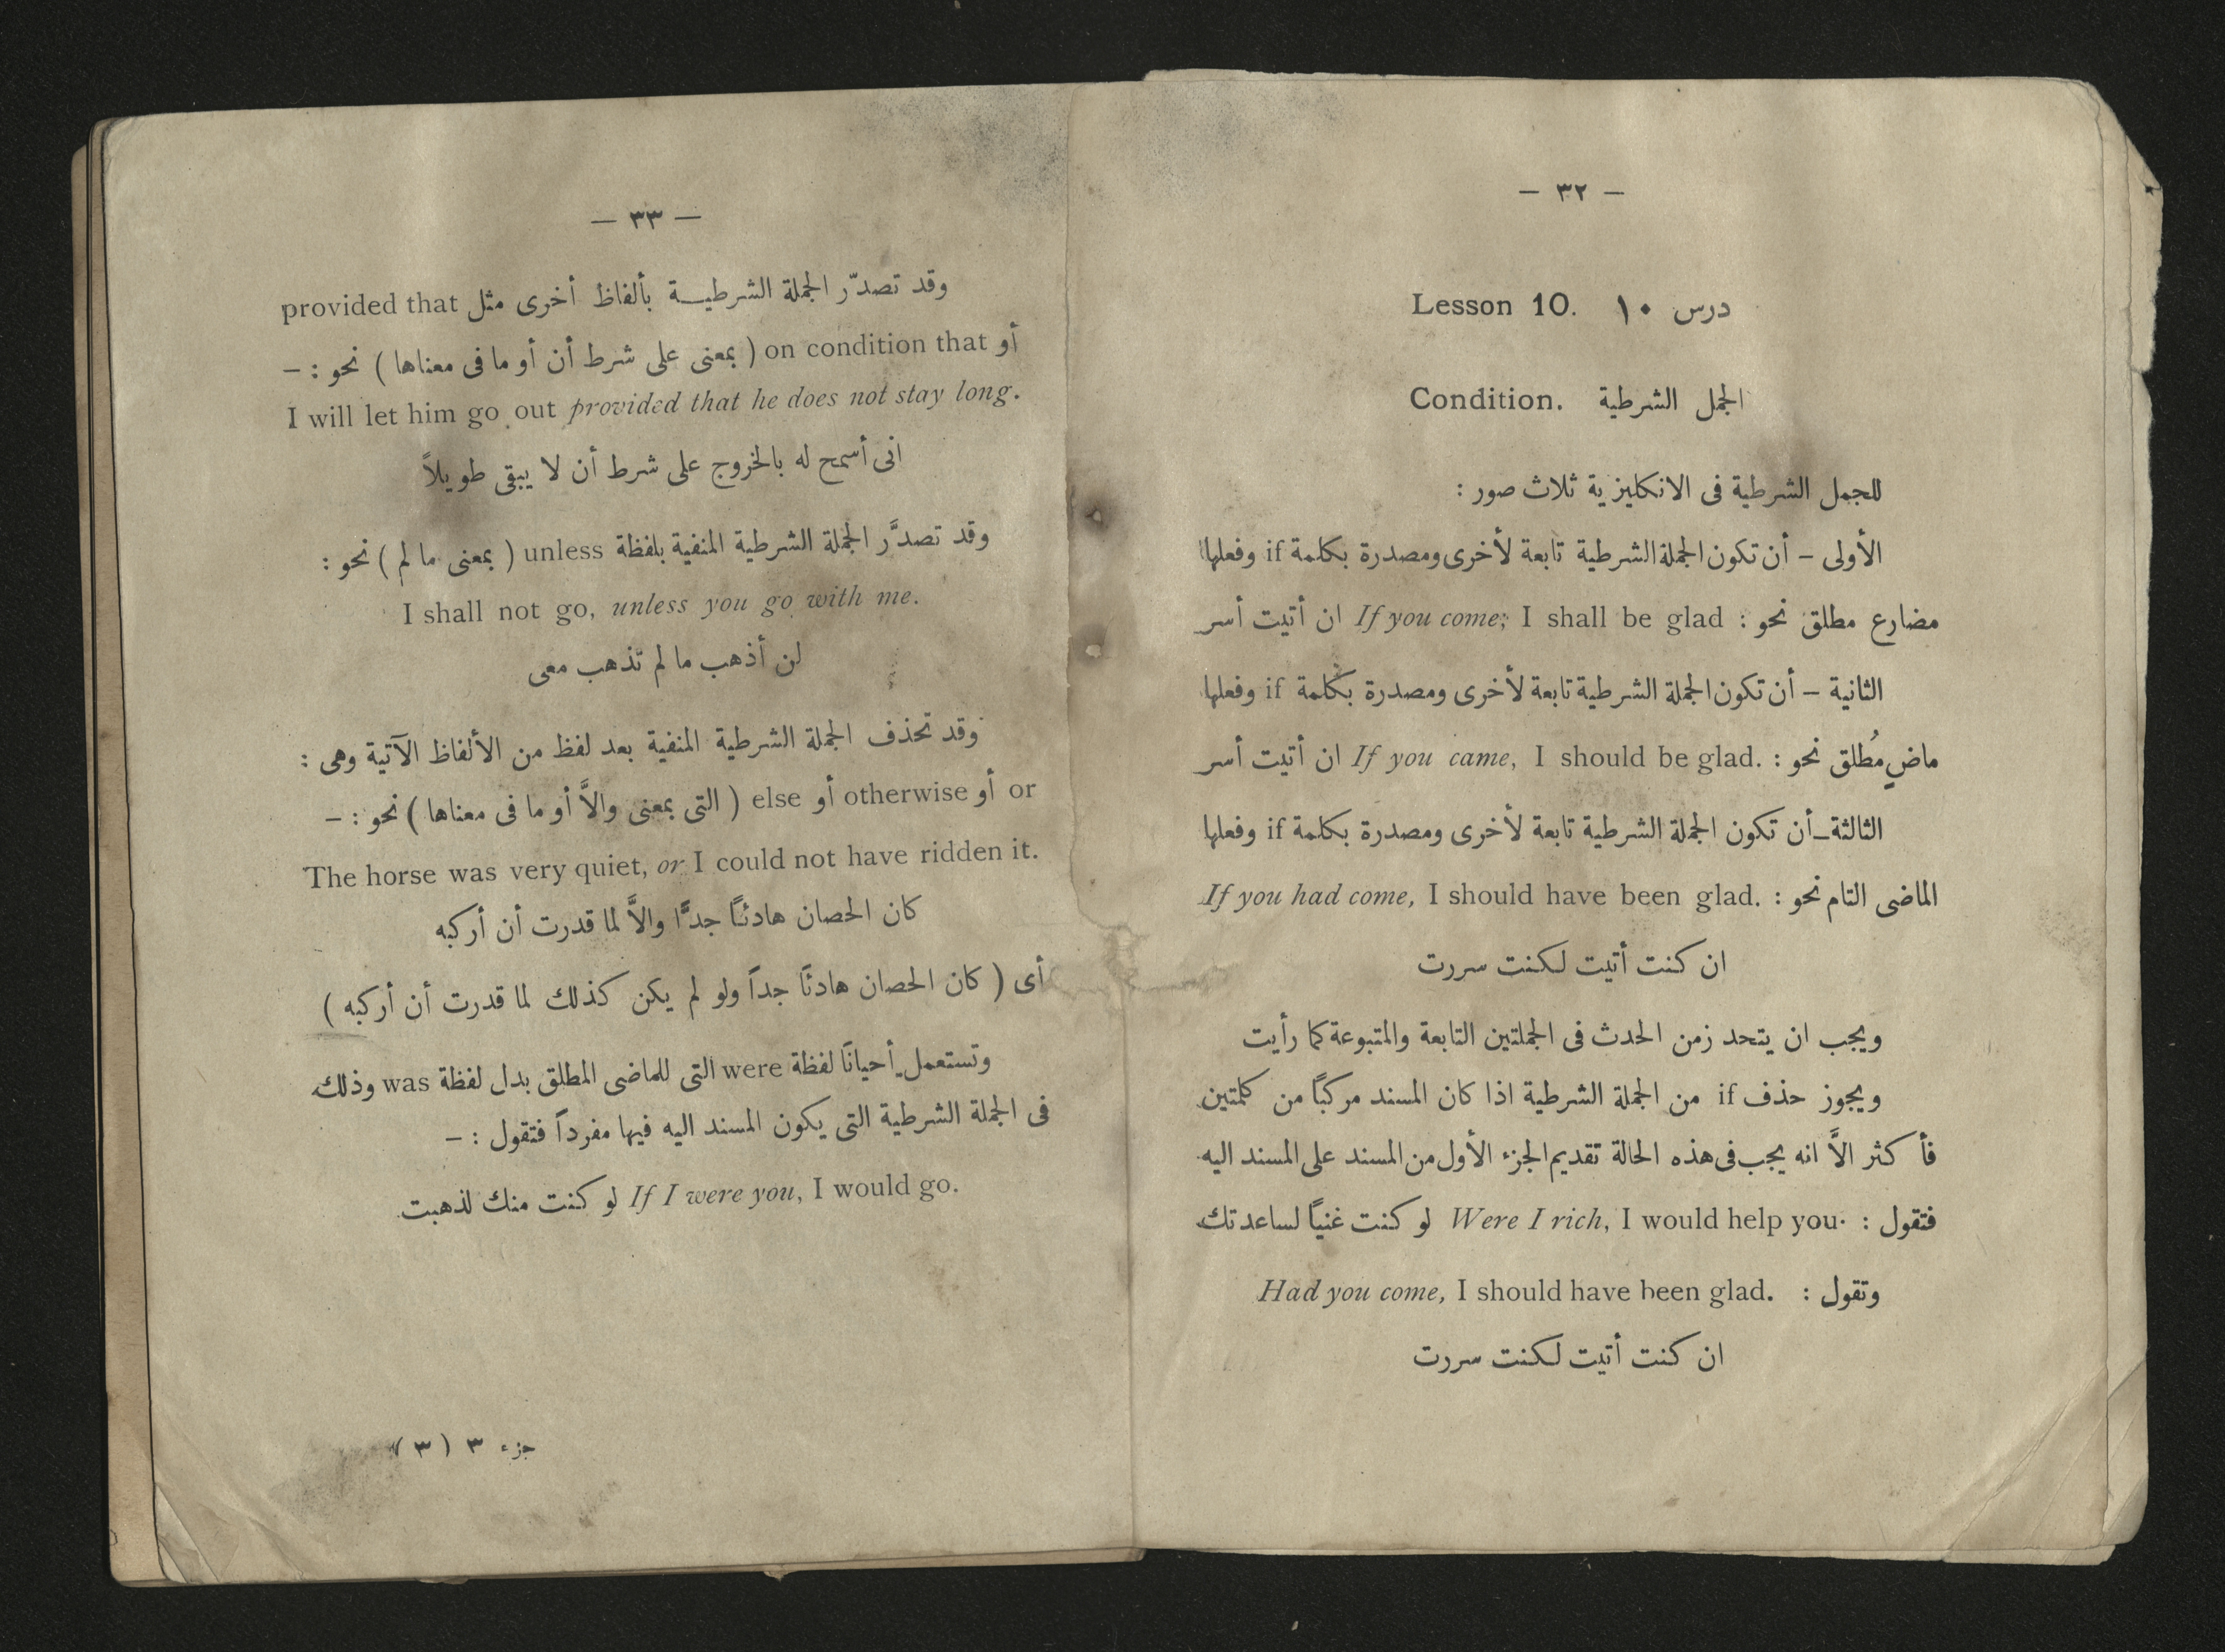 — ٣٢ —
درس ١٠ Lesson 10.
الجمل الشرطية Condition.
للجمل الشرطية فى الانكليزية ثلاث صور :
الأولى – أن تكون الجملة الشرطية تابعة لأخرى ومصدرة بكلمة if وفعلها
مضارع مطلق نحو : If you come; I shall be glad ان أتيت أسر
الثانية – أن تكون الجملة الشرطية تابعة لأخرى ومصدرة بكلمة if وفعلها
ماضٍ مُطلق نحو : If you came, I should be glad. ان أتيت أسر
الثالثة – أن تكون الجملة الشرطية تابعة لأخرى ومصدرة بكلمة if وفعلها
الماضى التام نحو : If you had come, I should have been glad.
ان كنت أتيت لكنت سررت
ويجب ان يتحد زمن الحدث فى الجملتين التابعة والمتبوعة كما رأيت
ويجوز حذف if من الجملة الشرطية اذا كان المسند مركبًا من كلمتين
فأكثر الاَّ انه يجب فى هذه الحالة تقديم الجزء الأول من المسند على المسند اليه
فتقول : Were I rich, I would help you. لو كنت غنياً لساعدتك
وتقول : Had you come, I should have been glad.
ان كنت أتيت لكنت سررت
— ٣٣ —
وقد تصدّر الجملة الشرطيـــة بألفاظ أخرى مثل provided that
أو on condition that ( بمعنى على شرط أن أو ما فى معناها ) نحو : –
I will let him go out provided that he does not stay long.
انى أسمح له بالخروج على شرط أن لا يبقى طويلاً
وقد تصدَّر الجملة الشرطية المنفية بلفظة unless ( بمعنى ما لم ) نحو :
I shall not go, unless you go with me.
لن أذهب ما لم تذهب معى
وقد تحذف الجملة الشرطية المنفية بعد لفظ من الألفاظ الآتية وهى :
or أو otherwise أو else ( التى بمعنى والاَّ أو ما فى معناها ) نحو : –
The horse was very quiet, or I could not have ridden it.
كان الحصان هادئًا جدًّا والاَّ لما قدرت أن أركبه
أى ( كان الحصان هادئًا جداً ولو لم يكن كذلك لما قدرت أن أركبه )
وتستعمل أحيانًا لفظة were التى للماضى المطلق بدل لفظة was وذلك
فى الجملة الشرطية التى يكون المسند اليه فيها مفرداً فتقول : –
If I were you, I would go. لو كنت منك لذهبت
جزء ٣ ( ٣ )